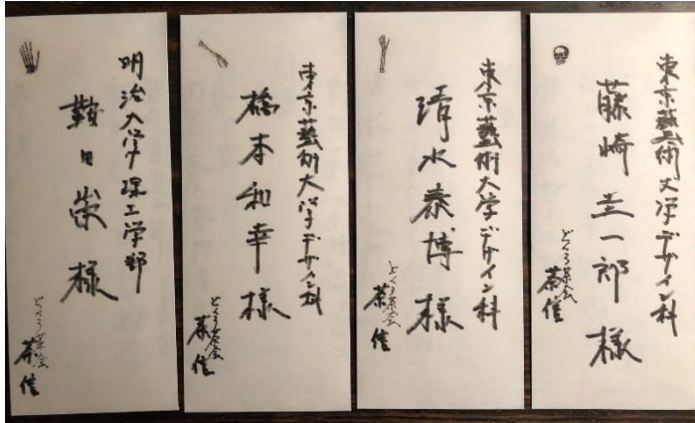 東京藝術大学デザイン科
藤崎圭一郎様
どくろ茶会
茶信
東京藝術大学デザイン科
清水泰博様
どくろ茶会
茶信
東京藝術大学デザイン科
橋本和幸様
どくろ茶会
茶信
明治大学理工学部
鞍田崇様
どくろ茶会
茶信